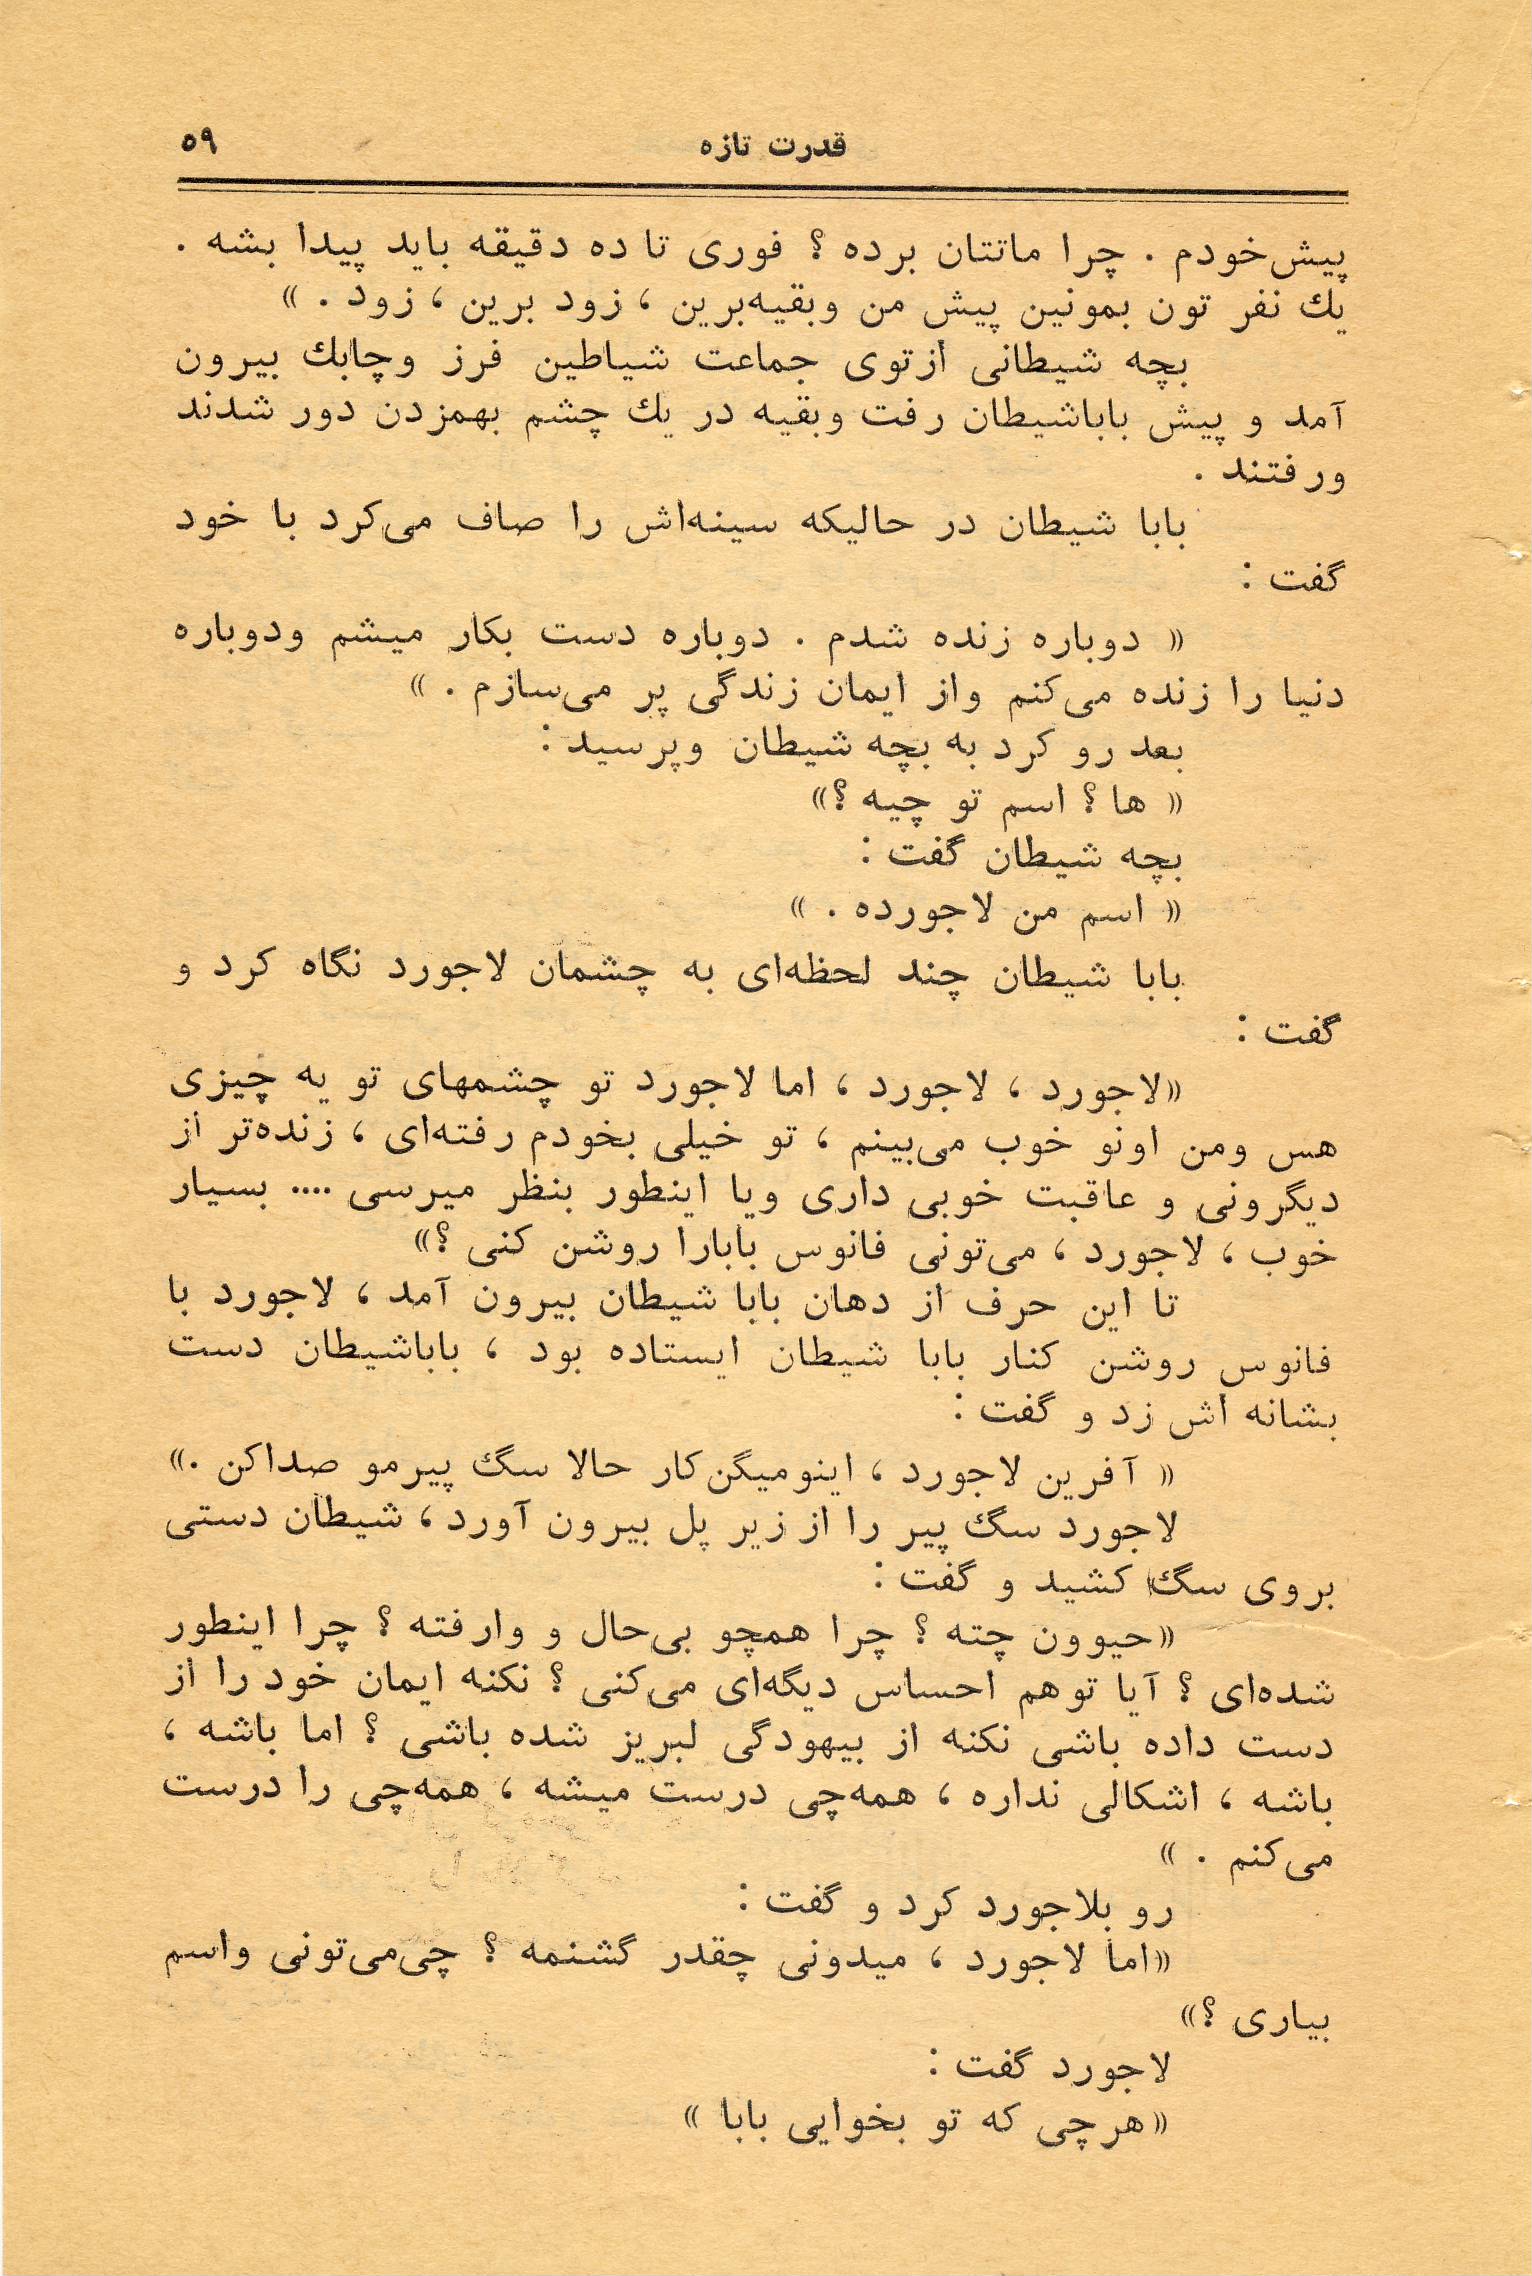 قدرت تازه
۵۹
پیش‌خودم . چرا ماتتان برده ؟ فوری تا ده دقیقه باید پیدا بشه .
یك نفر تون بمونین پیش من وبقیه‌برین ، زود برین ، زود . »
بچه شیطانی ازتوی جماعت شیاطین فرز وچابك بیرون
آمد و پیش باباشیطان رفت وبقیه در یك چشم بهمزدن دور شدند
ورفتند .
بابا شیطان در حالیکه سینه‌اش را صاف می‌کرد با خود
گفت :
« دوباره زنده شدم . دوباره دست بکار میشم ودوباره
دنیا را زنده می‌کنم واز ایمان زندگی پر می‌سازم . »
بعد رو کرد به بچه شیطان وپرسید :
« ها ؟ اسم تو چیه ؟»
بچه شیطان گفت :
« اسم من لاجورده . »
بابا شیطان چند لحظه‌ای به چشمان لاجورد نگاه کرد و
گفت :
«لاجورد ، لاجورد ، اما لاجورد تو چشمهای تو یه چیزی
هس ومن اونو خوب می‌بینم ، تو خیلی بخودم رفته‌ای ، زنده‌تر از
دیگرونی و عاقبت خوبی داری ویا اینطور بنظر میرسی .... بسیار
خوب ، لاجورد ، می‌تونی فانوس بابارا روشن کنی ؟»
تا این حرف از دهان بابا شیطان بیرون آمد ، لاجورد با
فانوس روشن کنار بابا شیطان ایستاده بود ، باباشیطان دست
بشانه اش زد و گفت :
« آفرین لاجورد ، اینومیگن‌کار حالا سگ پیرمو صداکن .»
لاجورد سگ پیر را از زیر پل بیرون آورد ، شیطان دستی
بروی سگ کشید و گفت :
«حیوون چته ؟ چرا همچو بی‌حال و وارفته ؟ چرا اینطور
شده‌ای ؟ آیا توهم احساس دیگه‌ای می‌کنی ؟ نکنه ایمان خود را از
دست داده باشی نکنه از بیهودگی لبریز شده باشی ؟ اما باشه ،
باشه ، اشکالی نداره ، همه‌چی درست میشه ، همه‌چی را درست
می‌کنم . »
رو بلاجورد کرد و گفت :
«اما لاجورد ، میدونی چقدر گشنمه ؟ چی‌می‌تونی واسم
بیاری ؟»
لاجورد گفت :
«هرچی که تو بخوایی بابا »